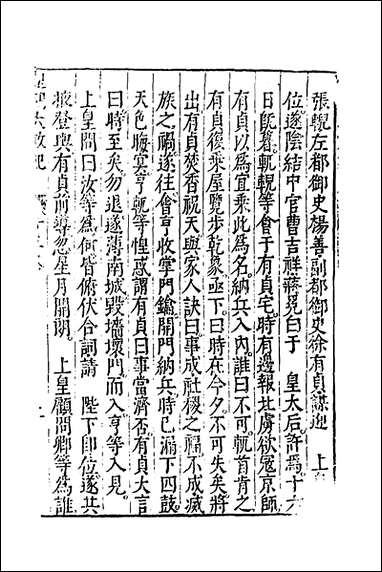 張輗左都御史楊善副都御史徐有貞謀迎　上
位遂陰結中官曹吉祥蔣冕白于　皇太后許焉十六
日旣暮軏輗等會于有貞宅時有邊報北虜欲寇京師
有貞以爲宜乘此爲名納兵入內誰曰不可軏首肯之
有貞復乘屋覽步乾象亟下曰時在今夕不可失矣將
出有貞焚香祝天與家人訣曰事成社稷之福不成滅
族之禍遂往會亨收掌門鑰開門納兵時已漏下四鼓
天色晦冥亨軏等惶惑謂有貞曰事當濟否有貞大言
曰時至矣勿退遂薄南城毀墻壞門而入亨等入見
上皇問曰汝等爲何皆俯伏合詞請　陛下卽位遂共
掖登輿有貞前導忽星月開朗　上皇顧問卿等爲誰